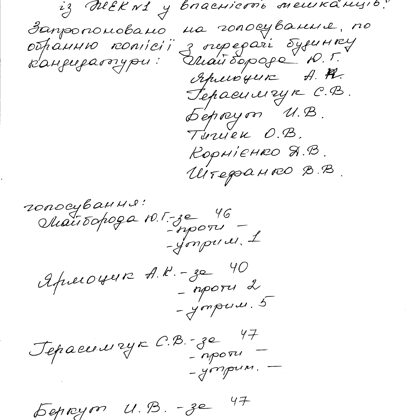 із ЖЕК №1 у власність мешканців.
Запропоновано на голосування, по
обранню комісії з передачі будинку
кандидатури: Майборода Ю.Г.
Ярмоцик А.К.
Герасимчук С.В.
Беркут И.В.
Тишек О.В.
Корнієнко Д.В.
Штефанко В.В.
голосування:
Майборода Ю.Г.-за 46
- проти -
- утрим. 1
Ярмоцик А.К. - за 40
- проти 2
- утрим. 5
Герасимчук С.В. - за 47
- проти -
- утрим. -
Беркут И.В. - за 47